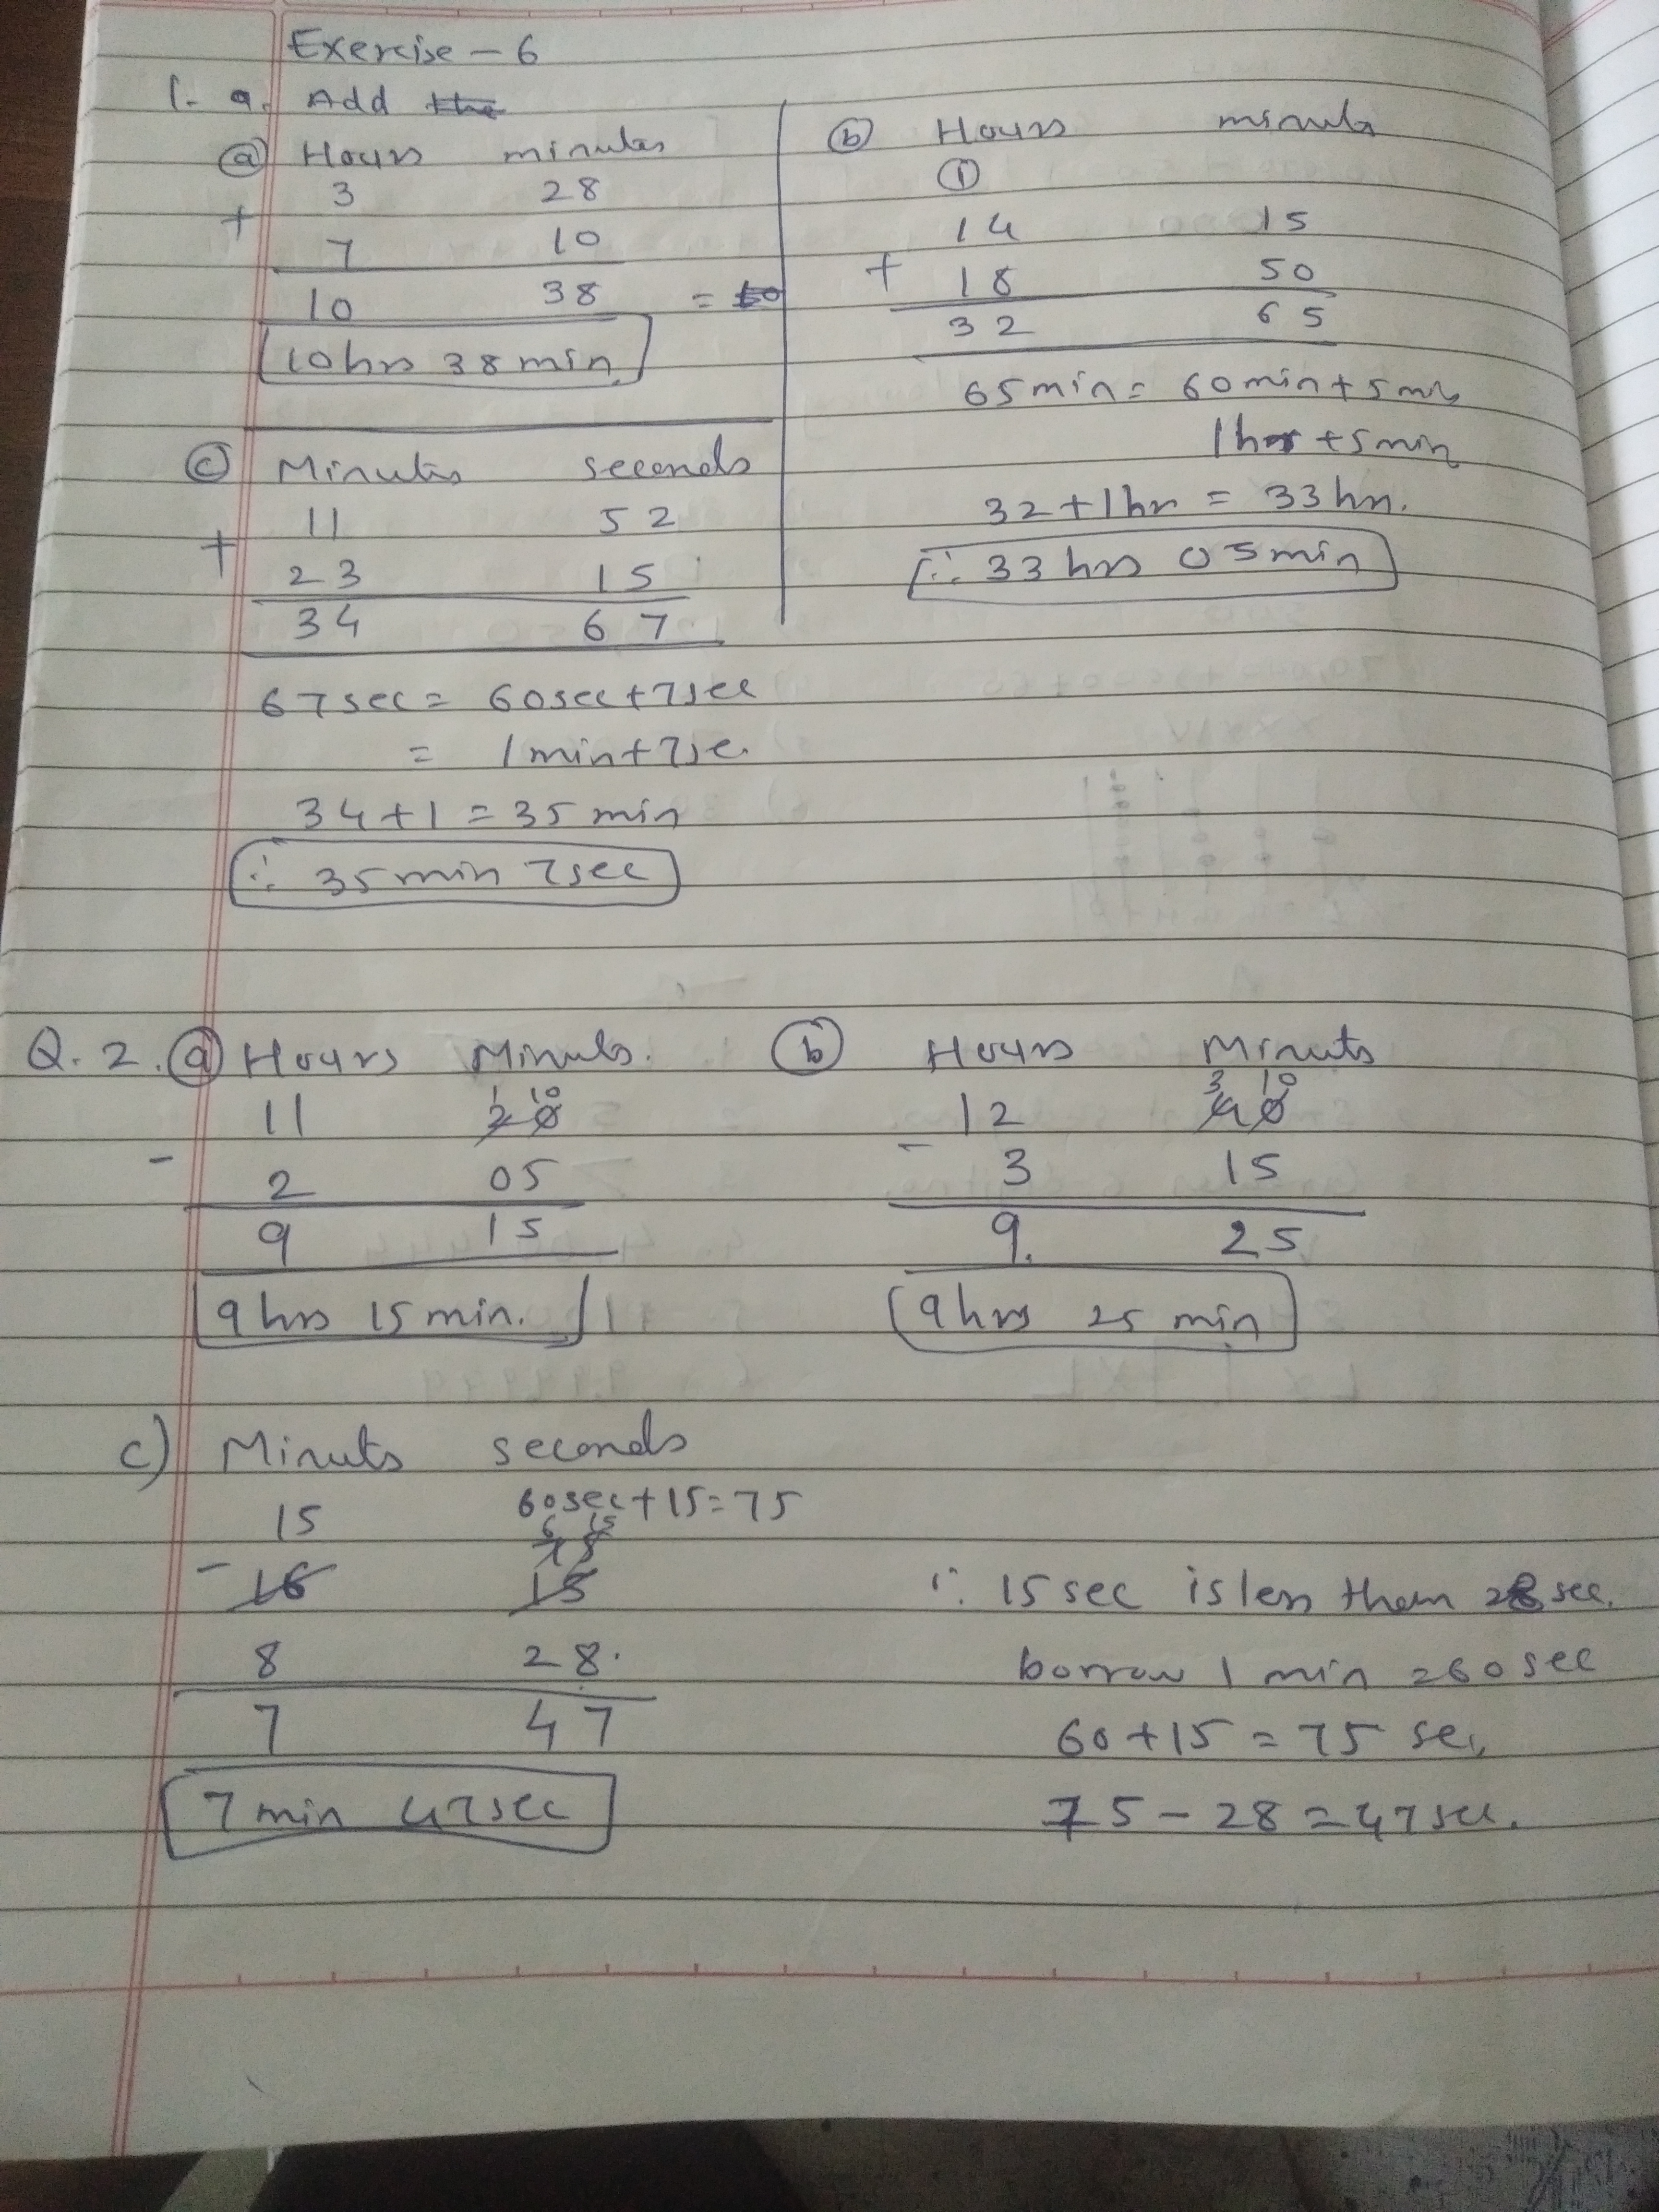 Exercise - 6
1. a. Add the
(a) Hours minutes
3 28
+
7 10
10 38 = 10
10 hrs 38 min.
(b) Hours minuts
(1)
14 15
+ 18 50
32 65
65 min = 60 min + 5 min
1 hr + 5 min
32 + 1 hr = 33 hr.
∴ 33 hrs 05 min
(c) Minutes seconds
11 52
+
23 15
34 67
67 sec = 60 sec + 7 sec
= 1 min + 7 se.
34 + 1 = 35 min
∴ 35 min 7 sec
Q. 2. (a) Hours Minuts.
1 10
11 20
-
2 05
9 15
9 hrs 15 min.
(b) Hours Minuts
3 10
12 40
-
3 15
9. 25
9 hrs 25 min
c) Minuts seconds
60 sec + 15 = 75
15 6 15
75
- 16 15
8 28.
7 47
7 min 47 sec
∵ 15 sec is less then 28 sec.
borrow 1 min = 60 sec
60 + 15 = 75 sec
75 - 28 = 47 sec.